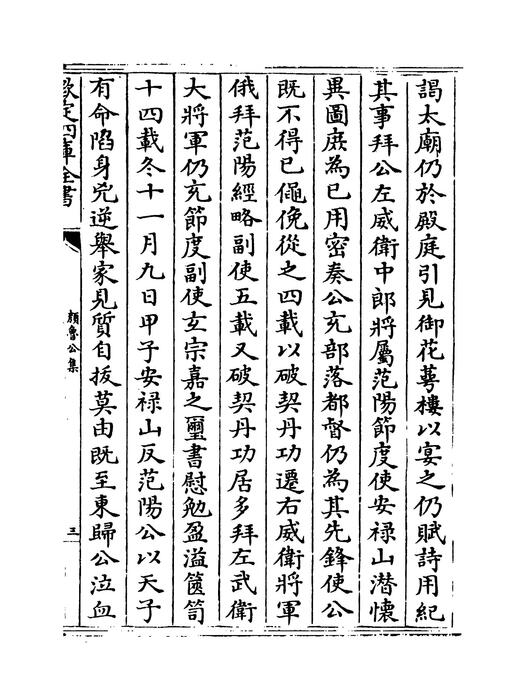 謁太廟仍於殿庭引見御花萼樓以宴之仍賦詩用紀
其事拜公左威衛中郎將屬范陽節度使安禄山潛懷
異圖庶為已用密奏公充部落都督仍為其先鋒使公
既不得已僶俛從之四載以破契丹功遷右威衛將軍
俄拜范陽經略副使五載又破契丹功居多拜左武衛
大將軍仍充節度副使𤣥宗嘉之璽書慰勉盈溢篋笥
十四載冬十一月九日甲子安禄山反范陽公以天子
有命䧟身兇逆舉家見質自拔莫由既至東歸公泣血
欽定四庫全書
顔魯公集
三